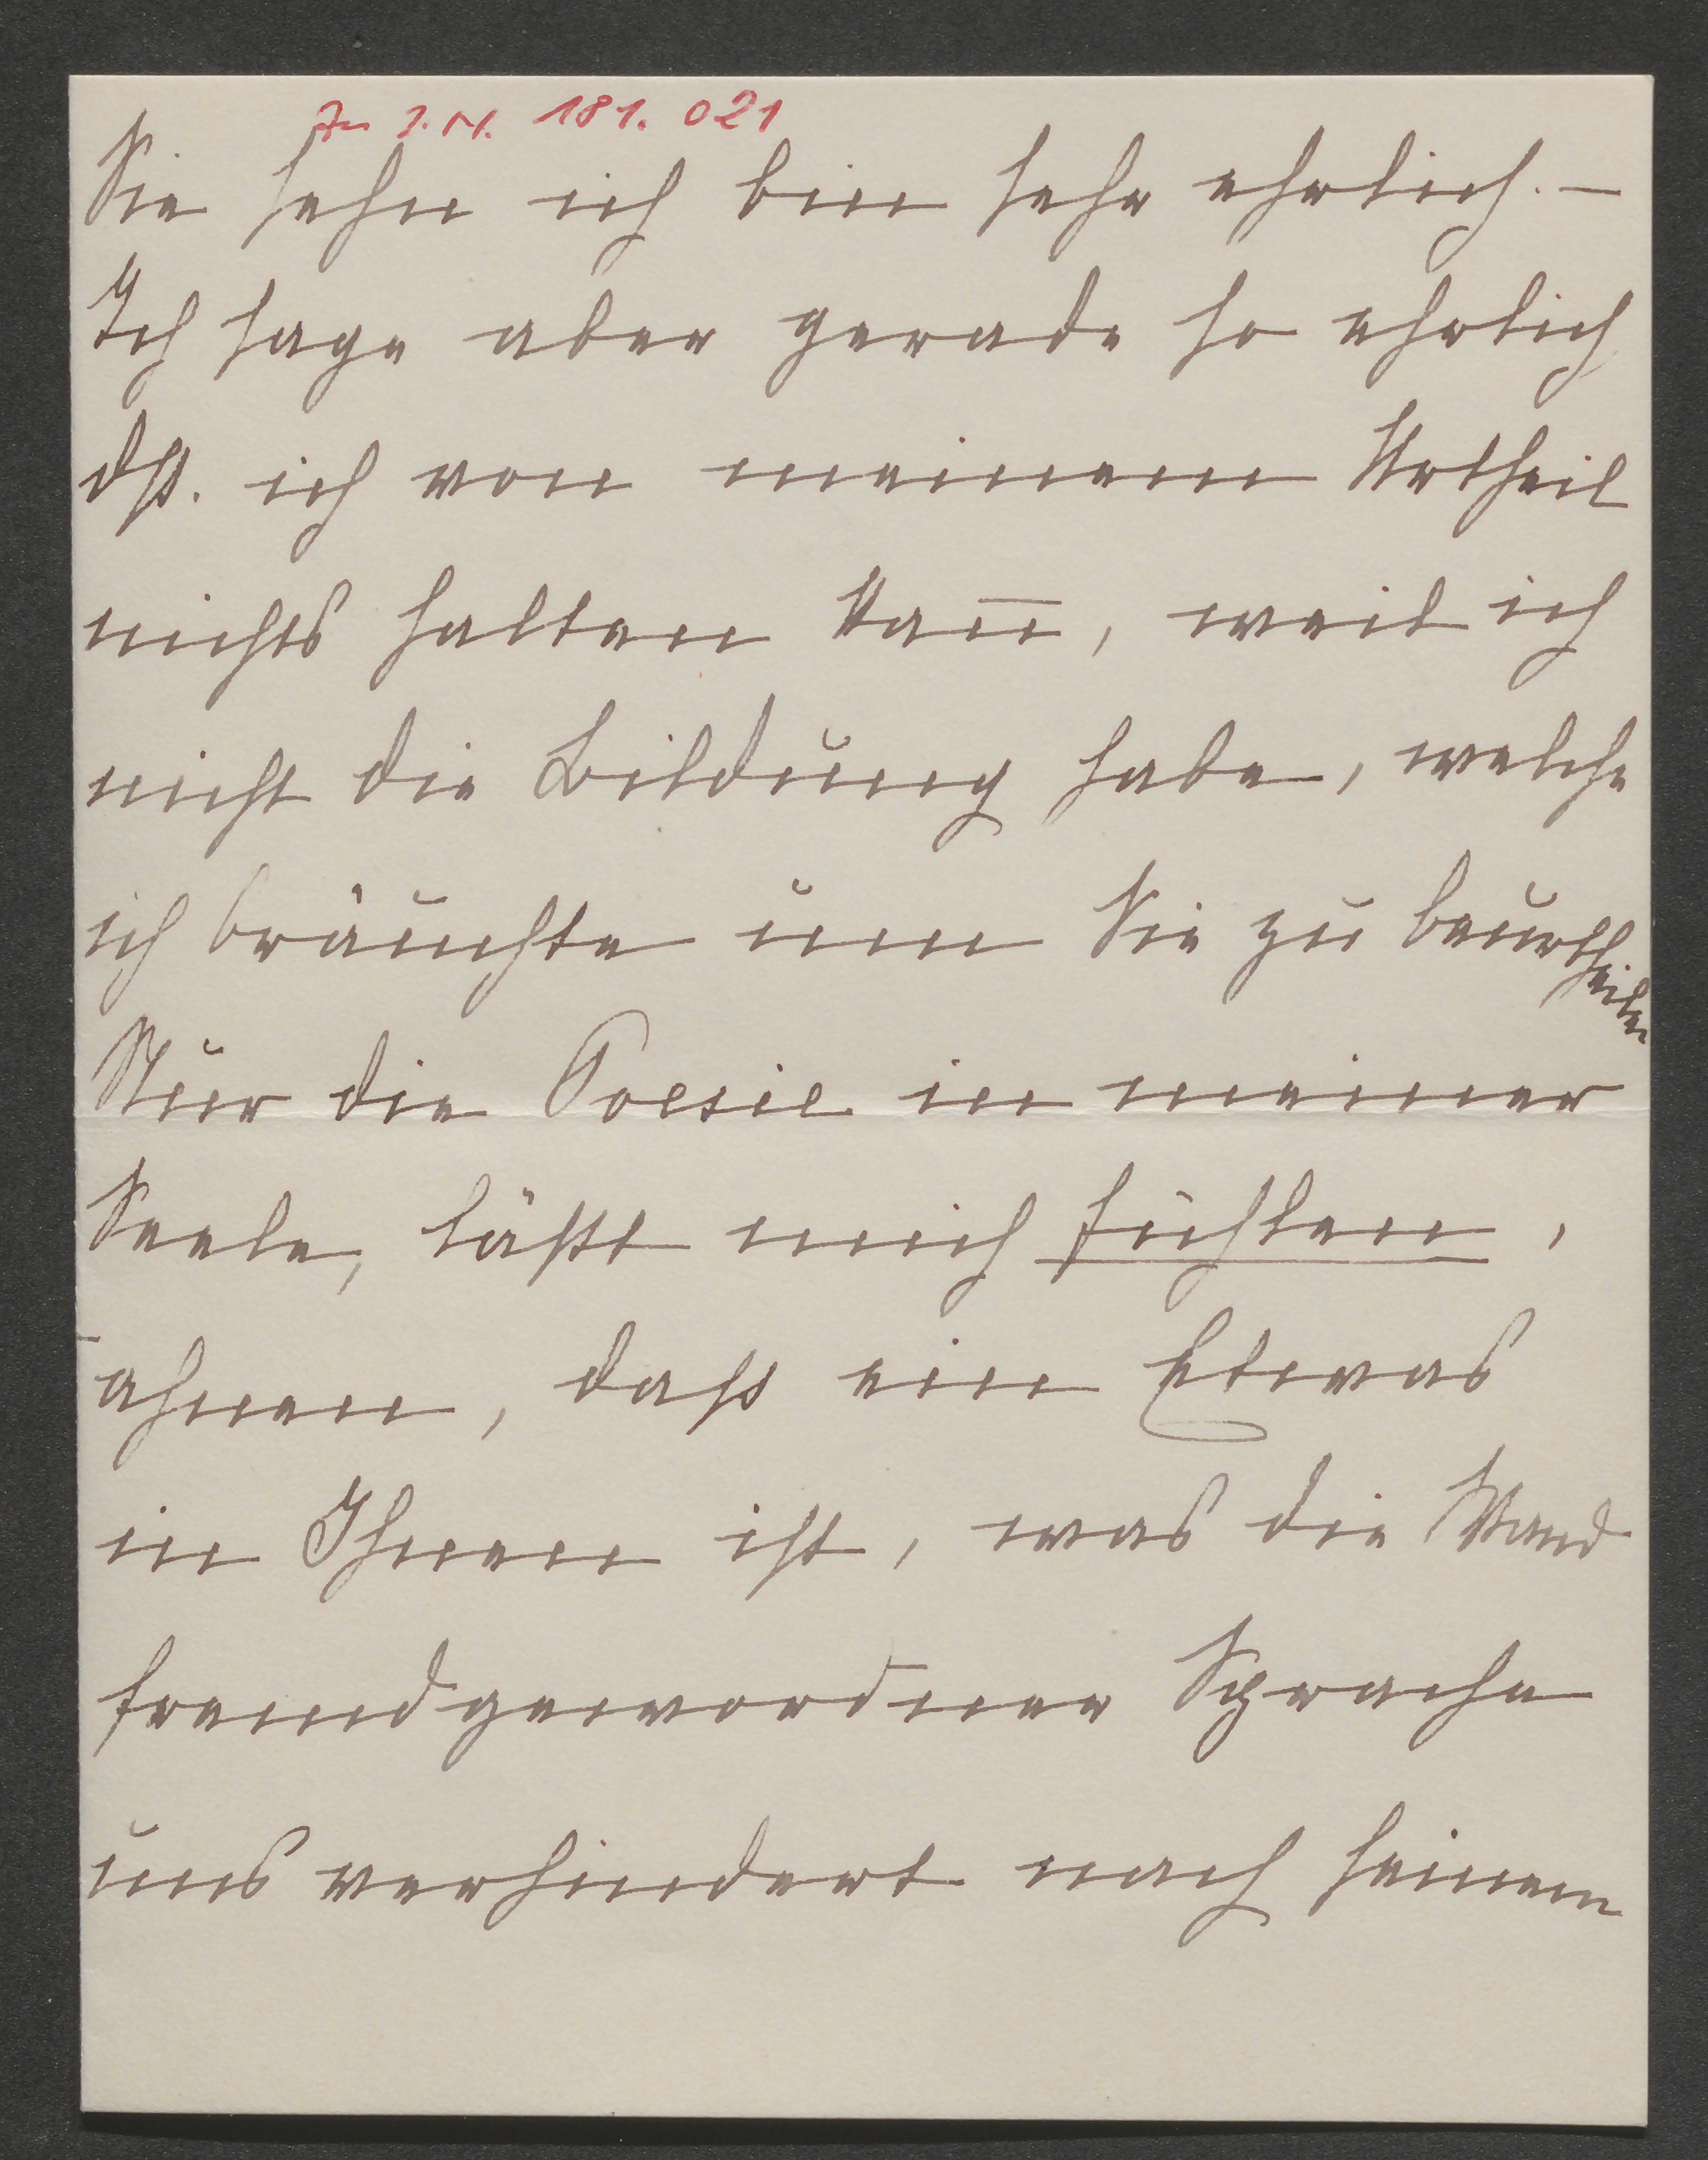 Zu I.N. 181.021
Sie sehn ich bin sehr ehrlich. –
Ich sage aber gerade so ehrlich
dß. ich von meinem Urtheil
nichts halten kan̅, weil ich
nicht die Bildung habe, welche
ich bräuchte um Sie zu beurtheilen
Nur die Poesie in meiner
Seele, läßt mich fühlen,
ahnen, daß ein Etwas
in Ihnen ist, was die Wand
fremdgewordner Sprache
uns verhindert nach seinem